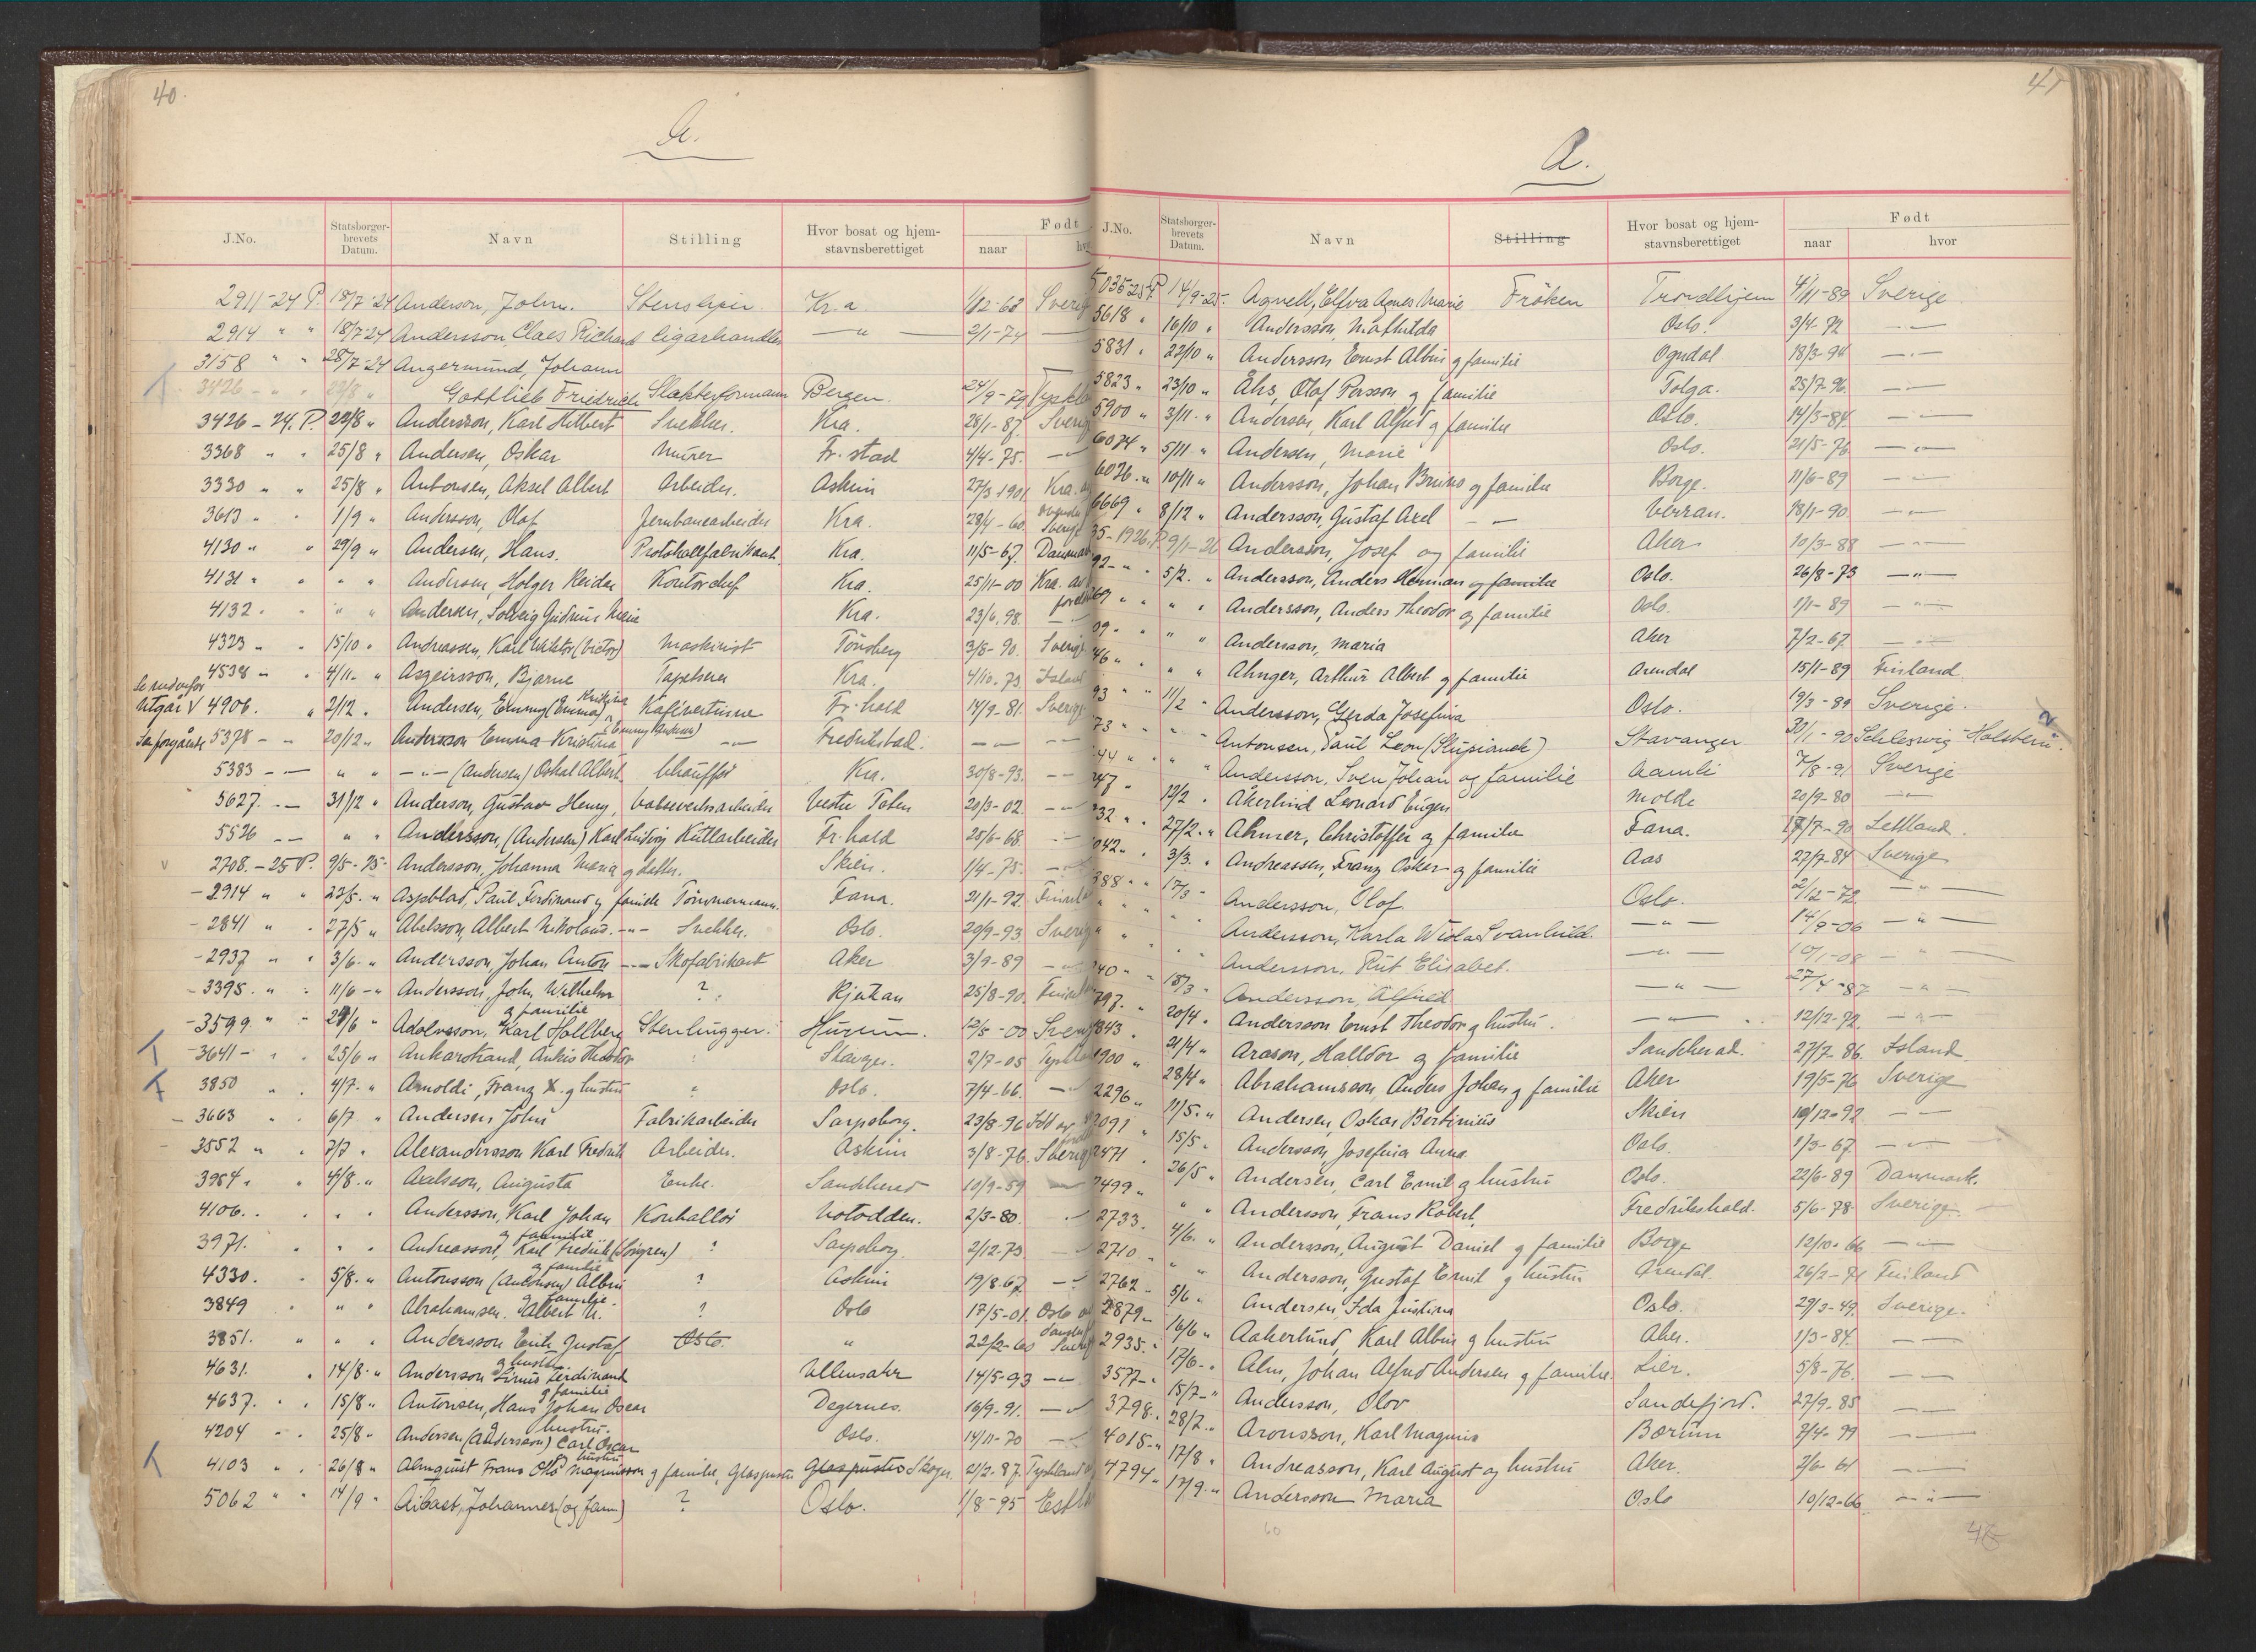 40.
A.
J.No. Statsborger-brevets Datum. Navn Stilling Hvor bosat og hjem-stavnsberettiget Født naar
2911-24 P. 18/7-24 Anderson, John. Kr.a 1/12-68 Sverig
2914 " " 18/7-24 Andersson, Claes Richard Cigarhandler —"— 2/1-74 —
3158 " " 28/7-24 Angermund, Johann
3426 - " " 22/8 " Gottlieb Friedrich Slakterformann Bergen. 24/9-79 Tyskla
3426-24. P. 22/8 " Andersson, Karl Hilbert Snekker. Kra. 28/1-87. Sverig
3368 " " 25/8 " Andersen, Oskar Murer Fr.stad 4/4-75. —"
3330 " " 25/8 " Antonsen, Aksel Albert Arbeider. Askim 27/3 1901 Kra. av
3613 " " 1/9 " Andersson, Olaf Jernbanearbeider Kra. 28/4-60. Sverige
4130 " " 29/9 " Andersen, Hans. Protokollfabrikant. Kra. 11/5-67. Danmar
4131 " " " " Andersen, Holger Reidar Kontorchef Kra. 25/11-00 Kra. av
4132 " " " " Andersen, Solveig Gudrun Marie Kra. 23/6.98. foreld
4323 " " 15/10 " Andreassen, Karl Viktor (Victor) Maskinist Tönsberg 3/8-90. Sverig
4538 " " 4/11- " Asgeirsson, Bjarne Tapetserer Kra. 4/10-73 Island
Se nedenfor
Utgår V 4906. " 2/12. Andersen, Emmy (Emma) Kristina Kaféverтinne Fr.hald 14/9-81. Sverige
Se forgående 5378 - " 20/12 " Andersson Emma Kristina (Emmy Andersen) —"— Fredrikstad. —"— —"—
5383 -"- " " —"— (Andersen) Oskal Albert. Chauffør Kra. 30/8-93. —"
5627. -"- 31/12 " Anderson, Gustav Henry, Vestre Toten 20/3-02. —"
5526 -"- " " Andersson, (Andersen) Karl Ludvig Fr.hald 25/6-68. —"
v 2708.-25 P. 9/5-25- Andersson, Johanna Maria g datter. Skien. 1/4-75. —"
-2914 " " 22/5. " Aspblad, Paul Ferdinand g familie Tömmermann. Fana. 21/1-92. Finla
-2841 " " 27/5 " Abelsson, Albert Nikolaus. -"- Snekker. Oslo. 20/9-93. Sverig
-2937 " " 3/6- " Andersson, Johan Anton -"- Skofabrikant Aker 3/9-89 —"
-3395. " " 11/6 - " Andersson, John Wilhelm ? Rjukan 25/8-90. Finla
g familie
-3599. " " 24/6 " Adolvsson, Karl Hallberg Stenhugger. Hurum. 12/5-00 Sverig
-3641- " " 25/6 " Ankarstrand, Ankis Theodor " Stange. 2/7-05 Tyskla
3850 " " 4/7. " Arnoldi, Franz X. g hustru " Oslo. 7/4-66. —"
-3663 " " 6/7 " Andersen John Fabrikarbeider Sarpsborg. 23/8-96 Född av
-3552 " " 7/7 " Alexandersson Karl Fredrik Arbeider. Askim 3/8-76. Sverig
3954 " " 4/8. " Axelsson, Augusta Enke. Sandeherred 10/9-59 —"
4106. " " " " Andersson, Karl Johan Notodden. 2/3-80. —"
g familie
3971. " " " Andreasson, Karl Fredrik (Sörgren) ? Sarpsborg. 2/12-73. —"
g familie
4330. " 5/8. " Antonsson (Antonsen) Albin ? Askim 19/8-67. —"
g familie.
3849 " " " Abrahamsen. Albert M. ? Oslo 17/5-01. Oslo av
3851. " " " Andersson Erik Gustaf Oslo. " 22/2-60 Sverig
g hustru
4631. " 14/8- " Andersson Linus Ferdinand Ullensaker 14/5-93 —"
g familie
4637. " " 15/8 " Antonsen, Hans Johan Oscar Degernes. 16/9-91. —"
g hustru.
4204 " " 25/8 " Andersen (Andersson) Carl Oscar Oslo. 14/11-70 —"
4103 " " 26/8 " Almquist Frans Otto Magnusson g familie, Glaspuster Glaspuster Skoger. 2/2-87. Tyskland
5062 " " 14/9 " Aibast, Johannes (og fam) ? Oslo. 1/8-95 Estl
41
A.
J.No. Statsborger-brevets Datum. Navn Stilling Hvor bosat og hjem-stavnsberettiget Født naar hvor
5035-25 P. 14/9-25. Agnell, Elfva Agnes Marie Fröken Trondhjem 4/11-89 Sverige
5618 " 16/10 " Andersson, Mathilda Oslo. 3/4-72 —"—
5831 " 22/10 " Andersson Ernst Albin g familie Ogndal 18/3-94 —"—
5823 " 23/10 " Åhs, Olof Persson g familie Tolga. 25/7-96. —"—
5900 " 3/11- " Andersen, Karl Alfred g familie Oslo. 14/3-84. —"—
6074 " 5/11 " Andersen, Marie Oslo. 21/5-76. —"—
6026. " 10/11 " Andersson, Johan Bruno g familie Borge. 11/6-89 —"—
6669 " 8/12 " Andersson, Gustaf Axel — — Verran. 18/1-90. —"—
35-1926. P. 9/1-26 Andersson, Josef og familie Aker 10/3-88 —"—
92- " " 5/2. " Andersson, Anders Herman og familie Oslo. 26/8-73 —"—
69 " " " " Andersson, Anders Theodor og familie Oslo. 1/1-89 —"—
09- " " " Andersson, Maria Aker 7/2-67. —"—
46 " " " " Ahnger, Arthur Albert g familie Arendal 15/1-89 Finland.
93 " " 11/2 " Andersson, Gerda Josefina Oslo. 19/3-89 Sverige.
73 " " " " Antonsen, Paul Leon (Slupianek) Stavanger 30/1-90 Schleswig-Holstein.
44 " " " " Andersson, Sven Johan og familie Aamli 7/8-91 Sverige
47 " 12/2 " Åkerlind Leonard Eugen Molde 20/9-80 —"—
32 " " 27/2. " Ahmer, Christoffer g familie Fana. 17/7-90. Lettland.
042 " " 3/3. " Andreassen, Franz Oskar g familie Aas 27/7-84 Sverige
388 " " 17/3 - Andersson, Olof Oslo. 2/12-72 —"—
" " " " Andersson, Karla Viola Svanhild. —"— 14/9-06 —"—
" " " Andersson, Rut Elisabet. —"— 10/1-08 —"—
40 " " 18/3 " Andersson, Alfred —"— 27/4-87 —"—
797. " 20/4. " Andersson Ernst Theodor g hustru. —"— 12/12-72. —"—
843 " 21/4 " Arason, Halldor g familie Sandeherad. 27/7-86. Island
1900 " 28/4 " Abrahamsson, Anders Johan g familie Aker 19/5-76 Sverige
2296 " 11/5. " Andersen, Oskar Bertinius Skien 10/12-92. —"—
2091 " 15/5. Andersson, Josefina Anna Oslo. 1/3-67. —"—
2471 . 26/5 " Andersen, Carl Emil g hustru Oslo. 22/6-89 Danmark.
2499 " " " Andersson, Frans Robert. Fredrikshald. 5/6-78. Sverige
2733. 4/6. " Andersson, August Daniel g familie Borge 12/10-66 —"—
2710 " " " Andersson, Gustaf Emil g hustru Arendal. 26/2-71 Finland
2762 " 5/6 " Andersen, Ida Justina Oslo. 29/3-49. Sverige.
2879 " 16/6 " Aakerlund, Karl Albin g hustru Aker. 1/3-84. —"—
2935. " 17/6- " Alm, Johan Alfred Andersen g familie. Lier. 5/8-76. —"—
3577- " 15/7- " Andersson, Olov Sandefjord. 27/9-85 —"—
3798. " 28/7. " Aronsson, Karl Magnus Bærum 7/4-99 —"—
4015- " 17/8 " Andreasson, Karl August og hustru Aker. 2/6-61 —"—
4794 " 17/9. " Andersson Maria Oslo 10/12-66. —"—
60